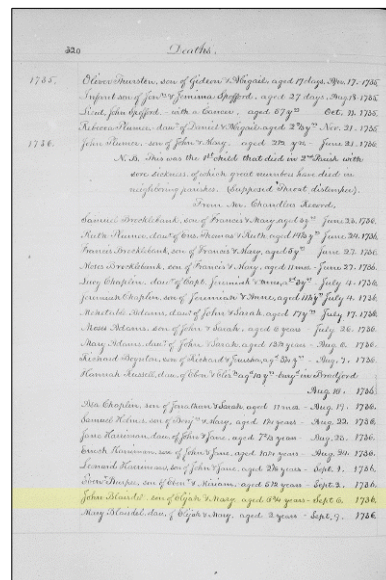 320 Deaths.
1735. Oliver Thurston, son of Gideon & Abigail, aged 17 days, Apr. 17. 1735
Infant son of Jon.ⁿ & Jemima Spofford, aged 27 days, Aug 18. 1735.
Lieut. John Spofford. - with a Cancer, aged 57 yrs Oct. 1735.
Rebecca Plumer dau. of Daniel & Abigail, aged Nov. 21. 1735.
1736. John Plumer - son of John & Mary. aged yrs - June 23. 1736.
N.B. This was the 1st child that died in 2nd Parish with
sore sickness, of which great numbers have died in
neighboring parishes. (Supposed Throat distemper).
From Mr. Chandlers Record.
Samuel Brocklebank, son of Francis & Mary, aged yrs June 24. 1736.
Ruth Plumer, dau. of Thomas & Ruth, aged yrs June 24. 1736.
Francis Brocklebank, son of Francis & Mary, aged 5 yrs June 27. 1736.
Moses Brocklebank, son of Francis & Mary, aged 11 mos - June 27. 1736.
Lucy Chaplin, dau. of Capt. Jeremiah & Anne, yrs - July 4. 1736
Jeremiah Chaplin, son of Jeremiah & Anne, aged yrs July 4. 1736
Mehetable Adams, dau. of John & Sarah, aged 17 yrs July 17. 1736
Moses Adams, son of John & Sarah, aged 6 years - July 26. 1736
Mary Adams dau. of John & Sarah, aged 13½ years - Aug. 6. 1736
Richard Boynton, son of Richard & aged yrs - Aug. 7. 1736
Hannah Russell, dau. of Eben. & aged yrs - in Bradford
Aug 10. 1736
Asa Chaplin, son of Jonathan & Sarah aged 11 mos - Aug. 17. 1736.
Samuel son of Benj.ⁿ & Mary, aged years - Aug. 22. 1736
Jane Harriman, dau. of John & Jane, aged 7½ years - Aug. 1736.
Enoch Harriman, son of John & Jane, aged 10¼ years - Aug. 24. 1736
Leonard Harriman, son of John & Jane, aged years - Sept. 1. 1736
son of Eben.ʳ & Miriam, aged 5½ years - Sept. 2. 1736.
John Blaisdel, son of Elijah & Mary aged years - Sept 6. 1736.
Mary Blaisdel, dau. of Elijah & Mary. aged 2 years - Sept. 7. 1736